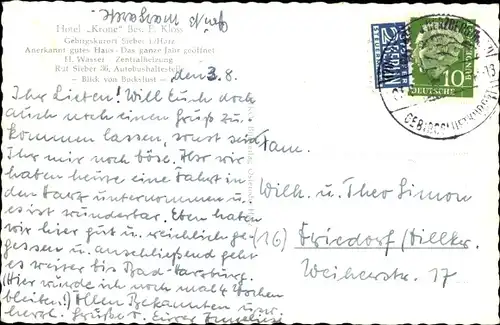 Hotel „Krone" Bes. E. Kloss
Gebirgskurort Sieber i./Harz
Anerkannt gutes Haus - Das ganze Jahr geöffnet
H. Wasser Zentralheizung
Ruf Sieber 36, Autobushaltestelle
- Blick von Buckelust -
den 3.8.
Ihr Lieben! Will Euch doch
auch noch einen Gruß zu
kommen lassen, sonst seid
Ihr mir noch böse. Hsr wir
haben heute eine Fahrt in
den Harz unternommen u
es ist wunderbar. Eben haben
wir hier gut u. reichlich ge-
gessen u. anschließend geht
es weiter bis Bad-Harzburg.
(Hier würde ich noch mal 4 Wochen
bleiben!) Allen Bekannten u.
herzl. Grüße v. Eurer
Fam.
Wilh. u. Theo Simon
(16) Friedorf/Dillkr.
Weiherstr. 17
2
NOTOPFER
10
DEUTSCHE